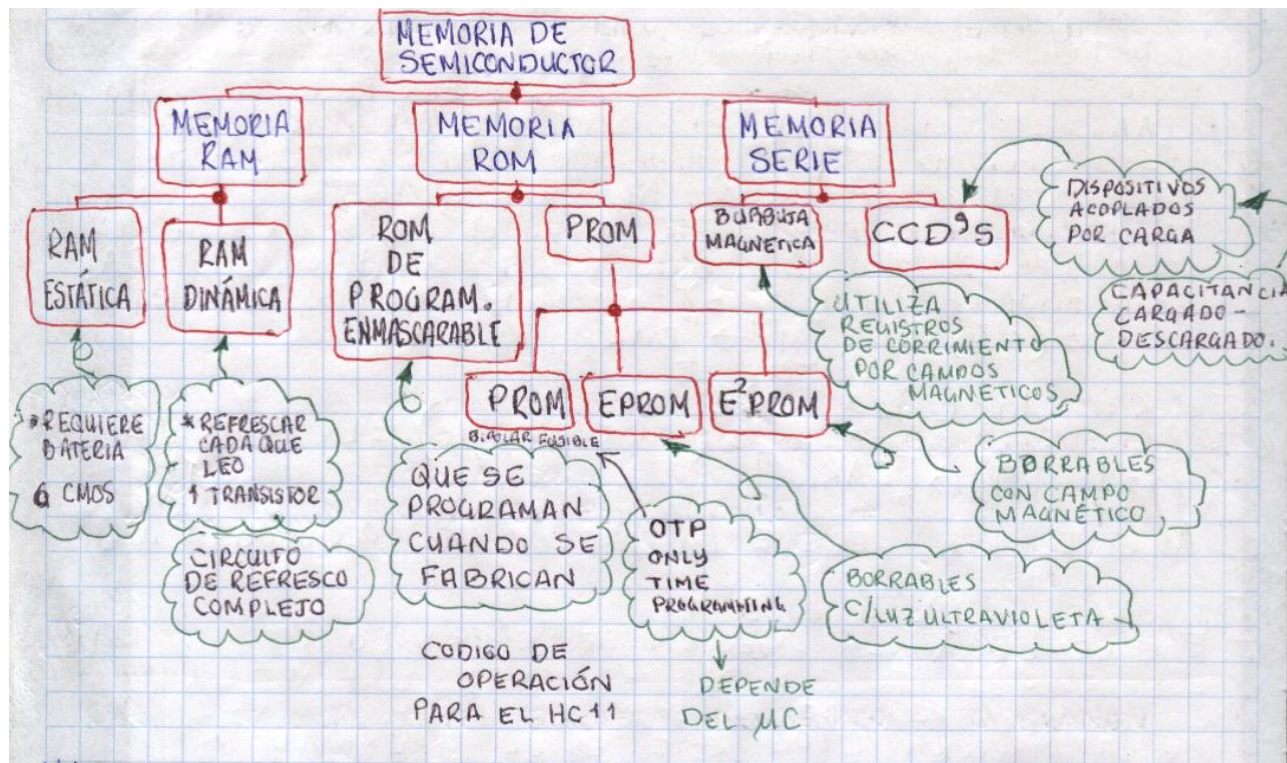 MEMORIA DE
SEMICONDUCTOR
MEMORIA
RAM
MEMORIA
ROM
MEMORIA
SERIE
RAM
ESTÁTICA
RAM
DINÁMICA
ROM
DE
PROGRAM.
ENMASCARABLE
PROM
BURBUJA
MAGNETICA
CCD'S
DISPOSITIVOS
ACOPLADOS
POR CARGA
CAPACITANCIA
CARGADO-
DESCARGADO.
UTILIZA
REGISTROS
DE CORRIMIENTO
POR CAMPOS
MAGNETICOS
PROM
BIPOLAR FUSIBLE
EPROM
E²PROM
* REQUIERE
BATERIA
6 CMOS
* REFRESCAR
CADA QUE
LEO
1 TRANSISTOR
CIRCUITO
DE REFRESCO
COMPLEJO
QUE SE
PROGRAMAN
CUANDO SE
FABRICAN
OTP
ONLY
TIME
PROGRAMMING
BORRABLES
CON CAMPO
MAGNÉTICO
BORRABLES
C/LUZ ULTRAVIOLETA
CODIGO DE
OPERACIÓN
PARA EL HC11
DEPENDE
DEL μC